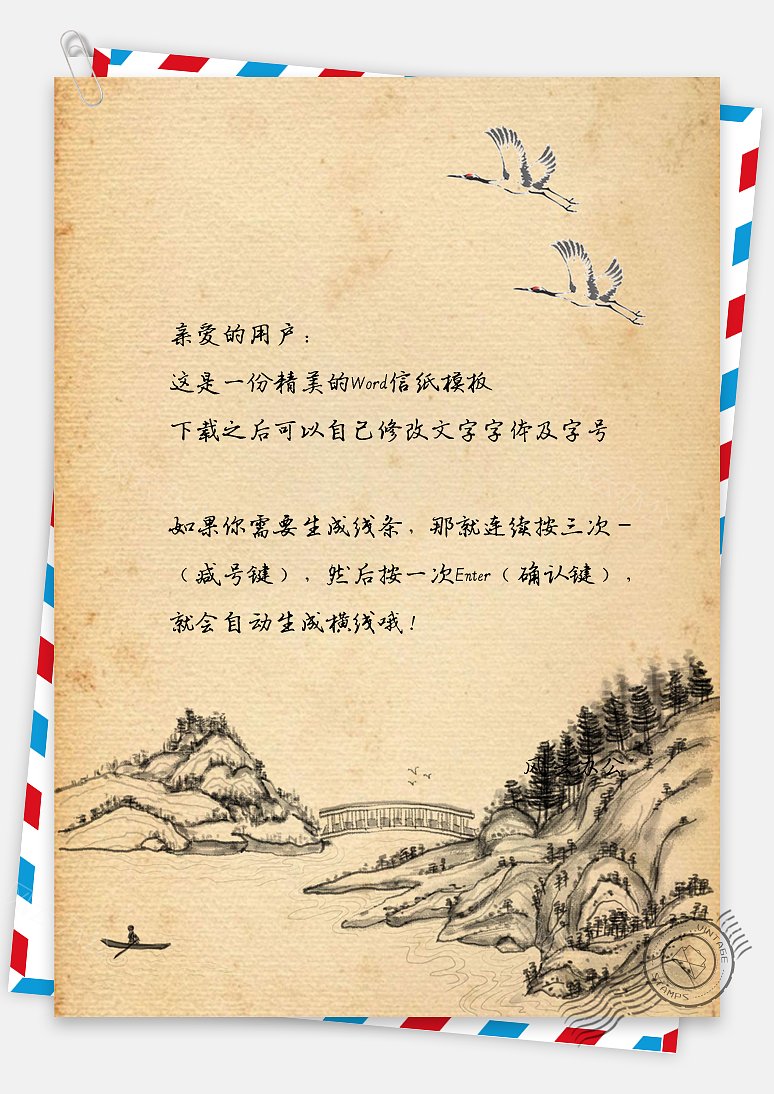 亲爱的用户：
这是一份精美的Word信纸模板
下载之后可以自己修改文字字体及字号
如果你需要生成线条，那就连续按三次－
（减号键），然后按一次Enter（确认键），
就会自动生成横线哦！
办公
VINTAGE
STAMPS